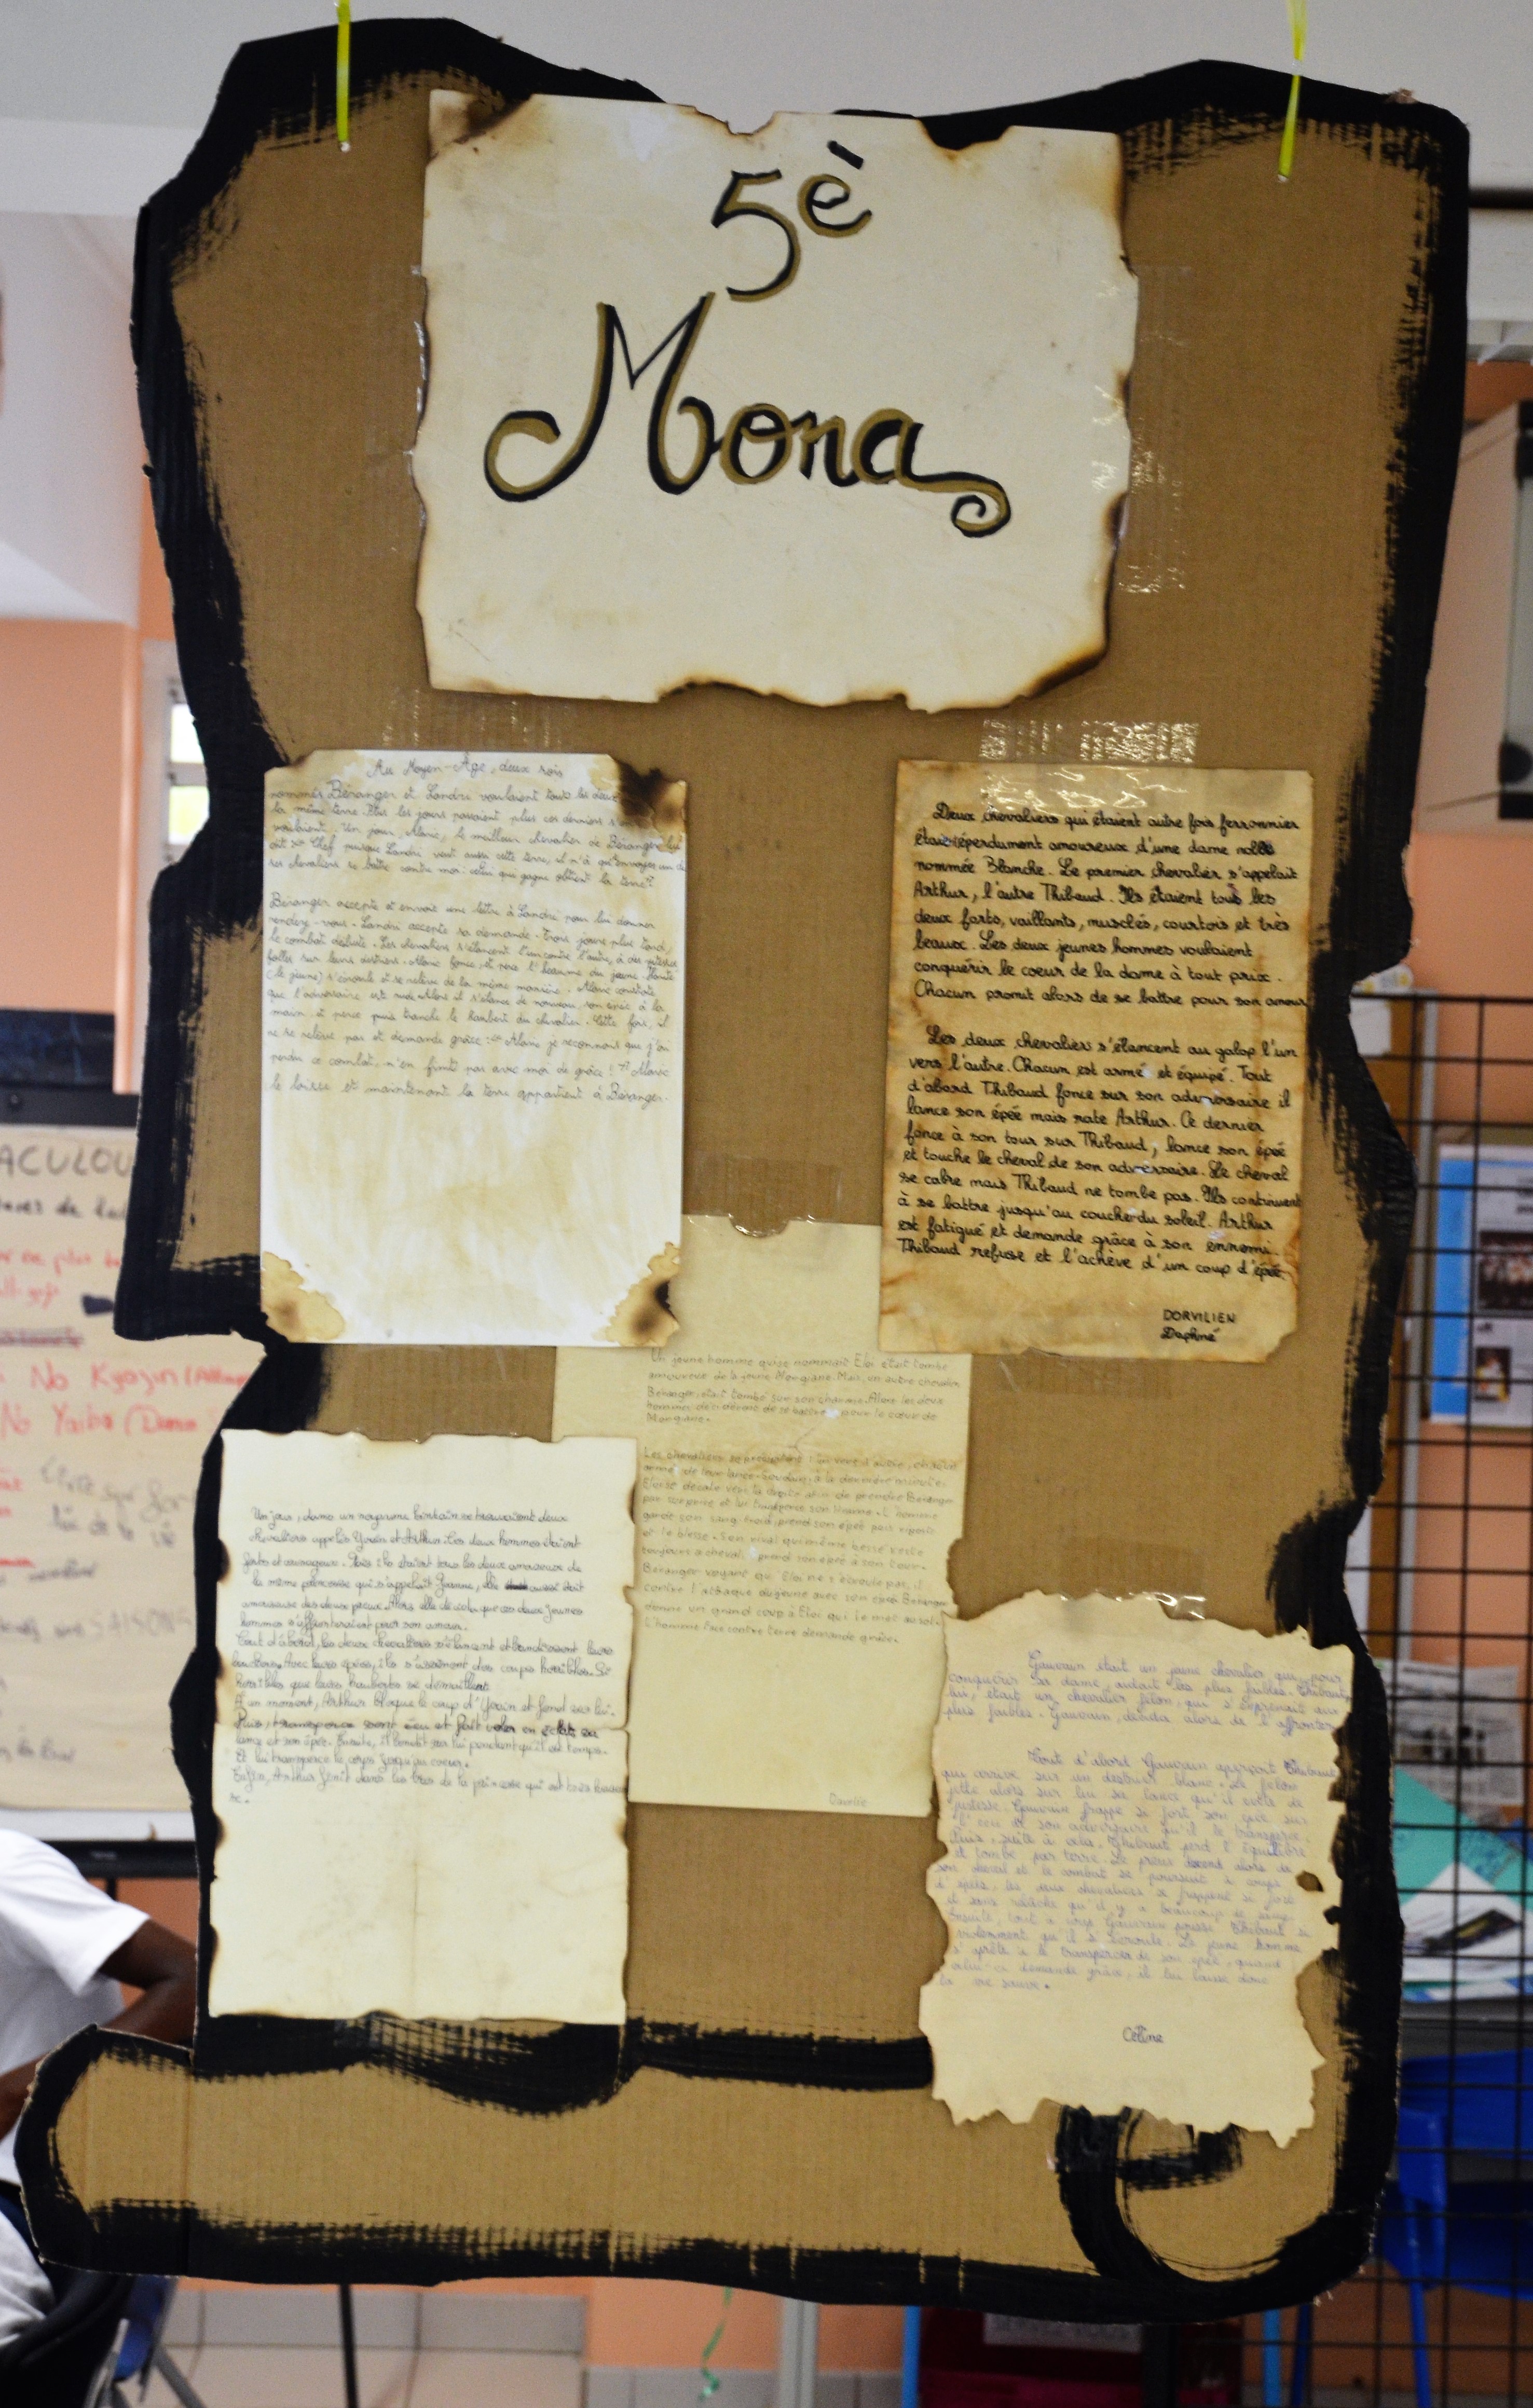 5è
Mona
Au Moyen-Âge, deux rois
nommés Béranger et Landri voulaient tous les deux
la même terre. Plus les jours passaient plus ces derniers
voulaient. Un jour, Alaric, le meilleur chevalier de Béranger
dit Chef puisque Landri veut aussi cette terre, il n'a qu'envoyer un
ses chevaliers se battre contre moi celui qui gagne obtient la terre"
Béranger accepte et envoit une lettre à Landri pour lui donner
rendez-vous. Landri accepte sa demande. Trois jours plus tard,
le combat débute. Les chevaliers s'élancent l'encontre l'autre, à des
folles sur leurs destriers. Alaric fonce et perce l'heaume du jeune
(le jeune) s'écroule et se relève de la même manière. Alaric constate
que l'adversaire est rude. Alors il s'élance de nouveau, son épée à la
main et perce puis tranche le haubert du chevalier. Cette fois, il
ne se relève pas et demande grâce : Alaric je reconnais que j'ai
perdu ce combat, n'en finit pas avec moi de grâce ! Alaric
le laisse et maintenant la terre appartient à Béranger.
Deux chevaliers qui étaient autre fois ferronnier
étaient éperdument amoureux d'une dame noble
nommée Blanche. Le premier chevalier s'appelait
Arthur, l'autre Thibaud. Ils étaient tous les
deux forts, vaillants, musclés, courtois et très
beaux. Les deux jeunes hommes voulaient
conquérir le coeur de la dame à tout prix.
Chacun promit alors de se battre pour son amour
Les deux chevaliers s'élancent au galop l'un
vers l'autre. Chacun est armé et équipé. Tout
d'abord Thibaud fonce sur son adversaire il
lance son épée mais rate Arthur. Ce dernier
fonce à son tour sur Thibaud, lance son épée
et touche le cheval de son adversaire. Le cheval
se cabre mais Thibaud ne tombe pas. Ils continuent
à se battre jusqu'au coucher du soleil. Arthur
est fatigué et demande grâce à son ennemi.
Thibaud refuse et l'achève d'un coup d'épée.
DORVILIEN
Daphné
Un jeune homme qui se nommait Éloi était tombé
amoureux de la jeune Morgiane. Mais, un autre chevalier
Béranger, était tombé sur son charme. Alors les deux
hommes décidèrent de se battre pour le cœur de
Morgiane.
Les chevaliers se précipitent l'un vers l'autre, chacun
armé de leur lance. Soudain, à la dernière minute
Éloi se décale vers la droite afin de prendre Béranger
par surprise et lui transperce son heaume. L'homme
garde son sang froid, prend son épée puis riposte
et le blesse. Son rival qui même blessé reste
toujours à cheval, prend son épée à son tour.
Béranger voyant qu' Éloi ne s'écroule pas, il
contre l'attaque du jeune avec son épée. Béranger
donne un grand coup à Éloi qui le met au sol.
L'homme face contre terre demande grâce.
Un jour, dans un royaume lointain se trouvaient deux
chevaliers appelés Yvain et Arthur. Les deux hommes étaient
forts et courageux. Mais ils étaient tous les deux amoureux de
la même princesse qui s'appelait Jeanne, elle aussi était
amoureuse des deux preux. Alors elle décida que ces deux jeunes
hommes s'affronteraient pour son amour.
Tout d'abord, les deux chevaliers s'élancent et brandissent leurs
boucliers. Avec leurs épées, ils s'assènent des coups horribles. Si
horribles que leurs hauberts se démaillent.
À un moment, Arthur bloque le coup d'Yvain et fond sur lui.
Puis, transperce sont écu et fait voler en éclats sa
lance et son épée. Ensuite, il bondit sur lui pendant qu'il est temps.
Et lui transperce le corps jusqu'au coeur.
Enfin, Arthur finit dans les bras de la princesse qui est très heureu
se.
Gauvain était un jeune chevalier qui pour
conquérir sa dame, aidait les plus faibles. Thibaut,
lui, était un chevalier félon, qui s'éprenait aux
plus faibles. Gauvain, décida alors de l'affronter
Tout d'abord Gauvain aperçoit Thibaut
qui arrive sur un destrier blanc. Le félon
jette alors sur lui sa lance qu'il évite de
justesse. Gauvain frappe si fort son épée sur
l'écu de son adversaire qu'il le transperce.
Puis, suite à cela, Thibaut perd l'équilibre
et tombe par terre. Le preux descend alors de
son cheval et le combat se poursuit à coups
d'épées, les deux chevaliers se frappent si fort
et sans relâche qu'il y a beaucoup de sang.
Ensuite, tout à coup Gauvain pousse Thibaut si
violemment qu'il s'écroule. Le jeune homme
s'apprête à le transpercer de son épée, quand
celui-ci demande grâce, il lui laisse donc
la vie sauve.
Céline
No Kyojin
No Yaiba
SAISONS